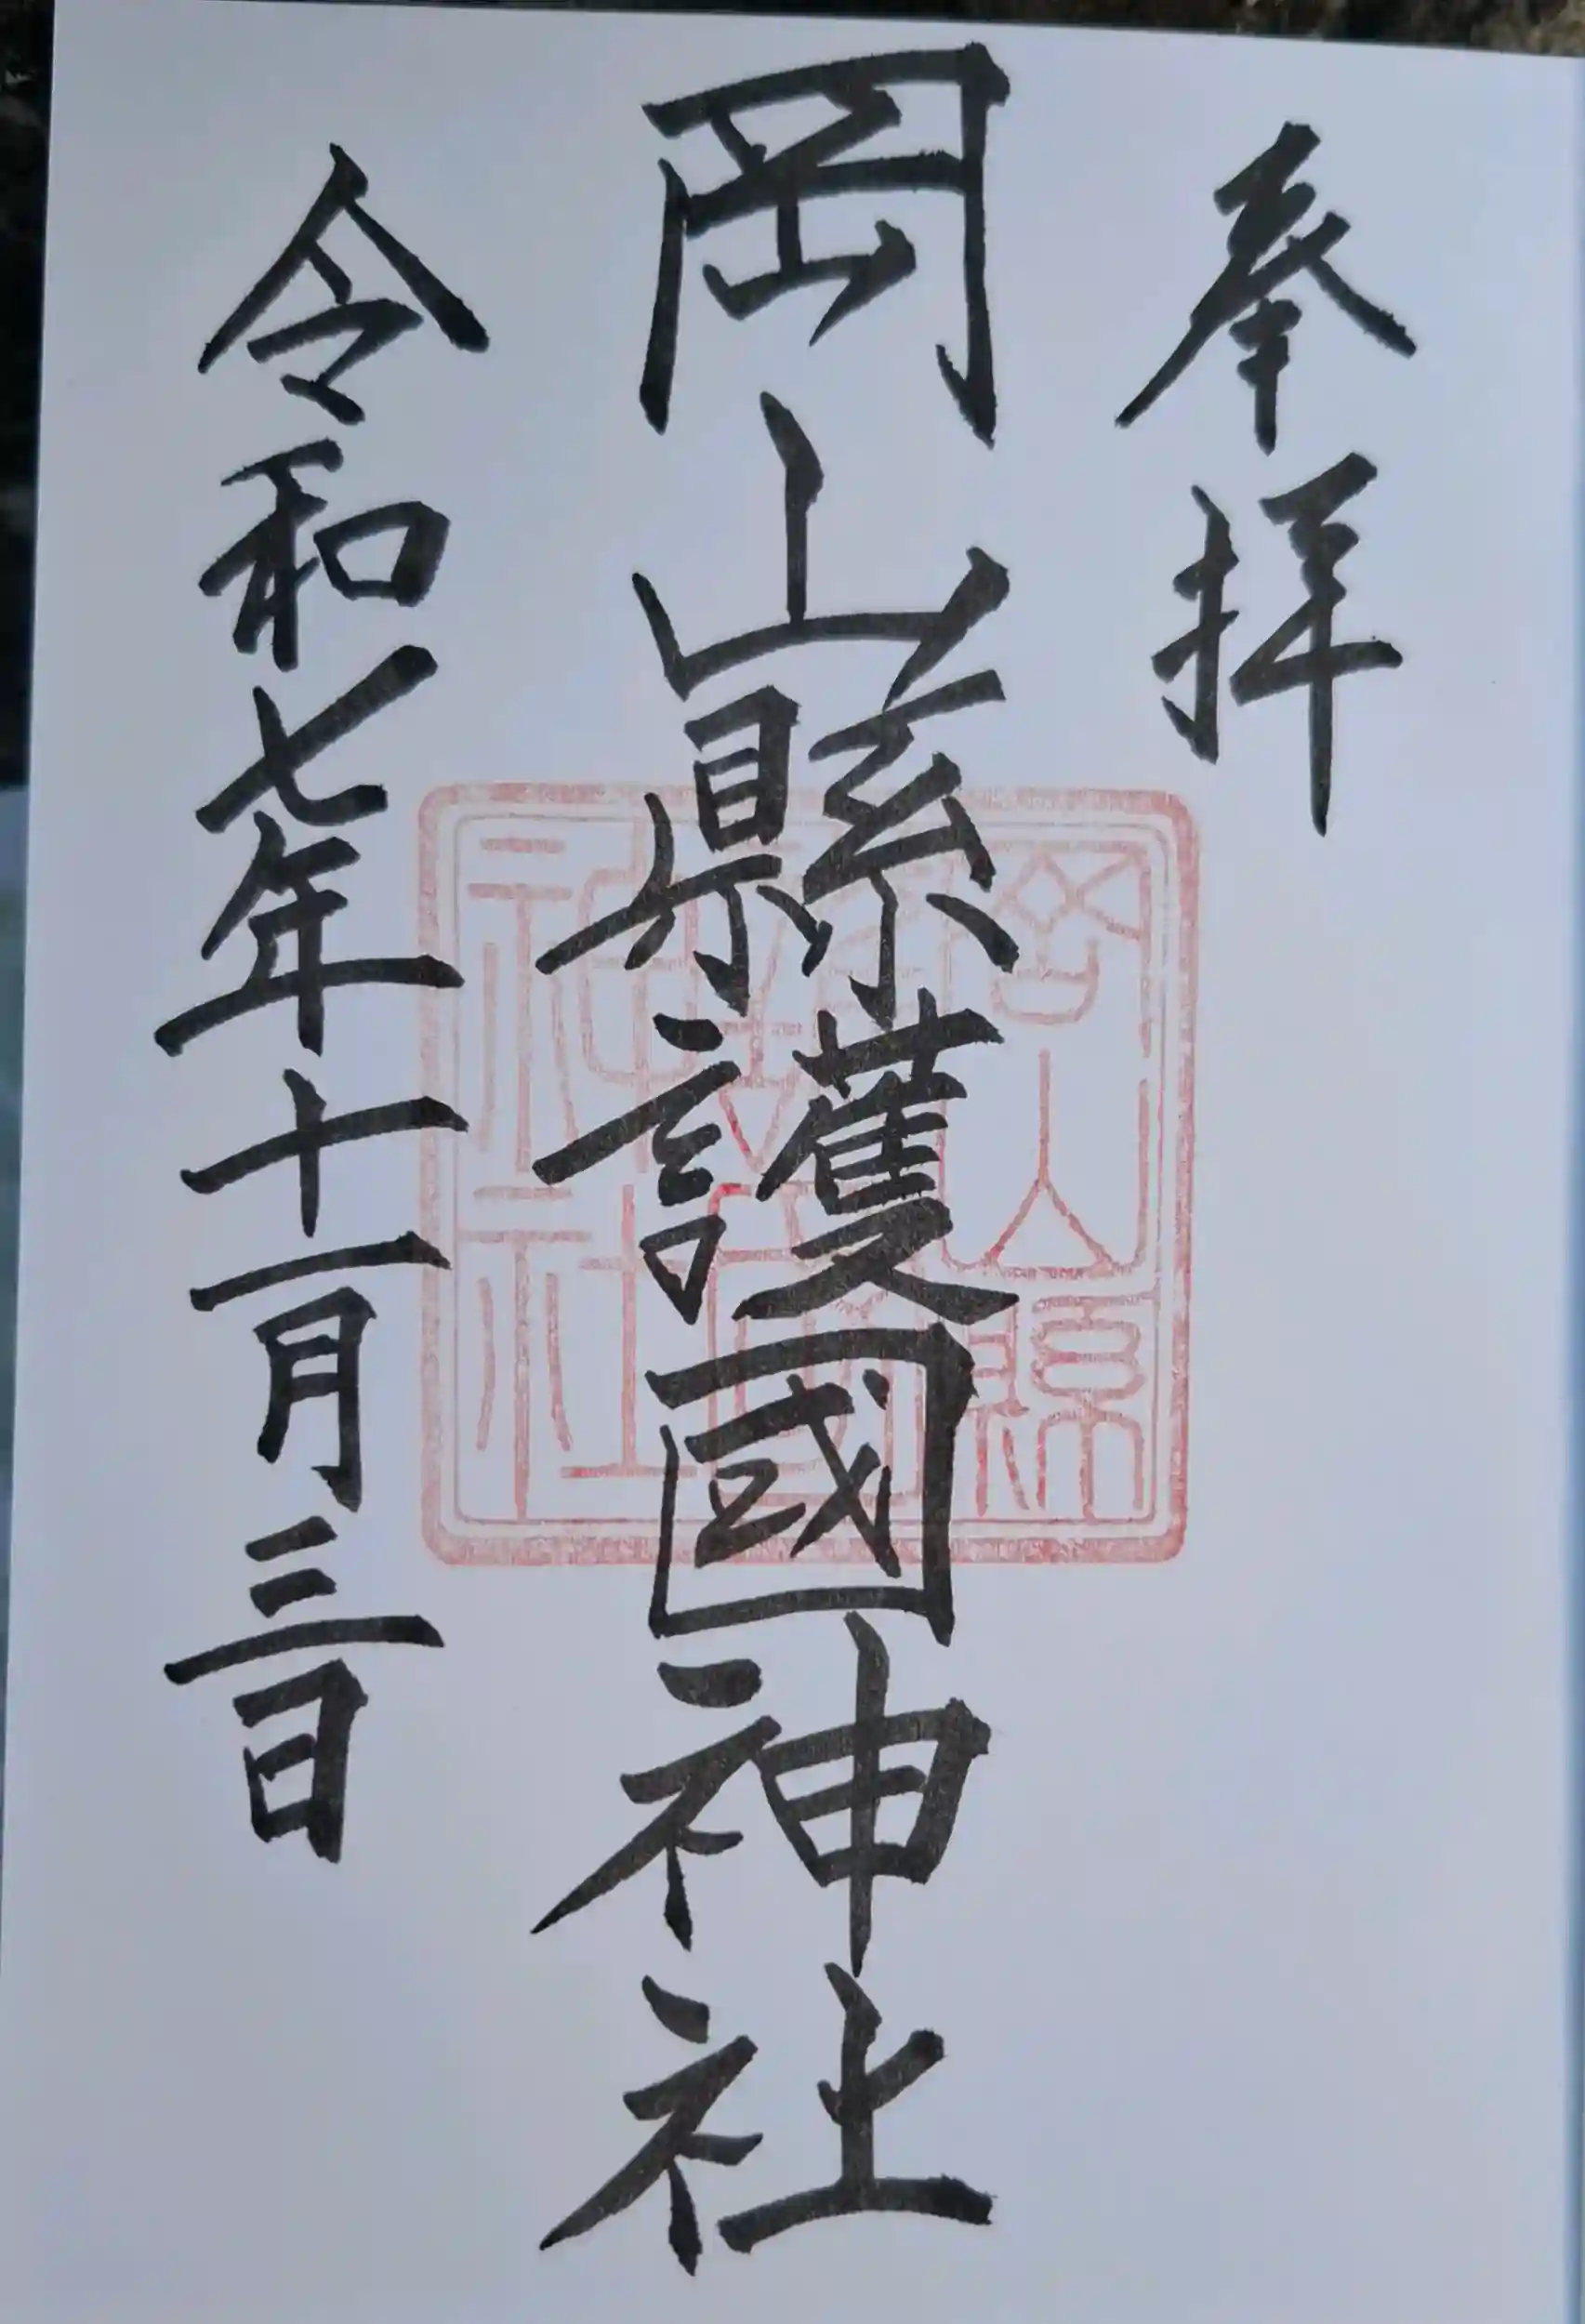 奉拝
岡山縣護國神社
令和七年十一月三日
岡山縣
護國
神社